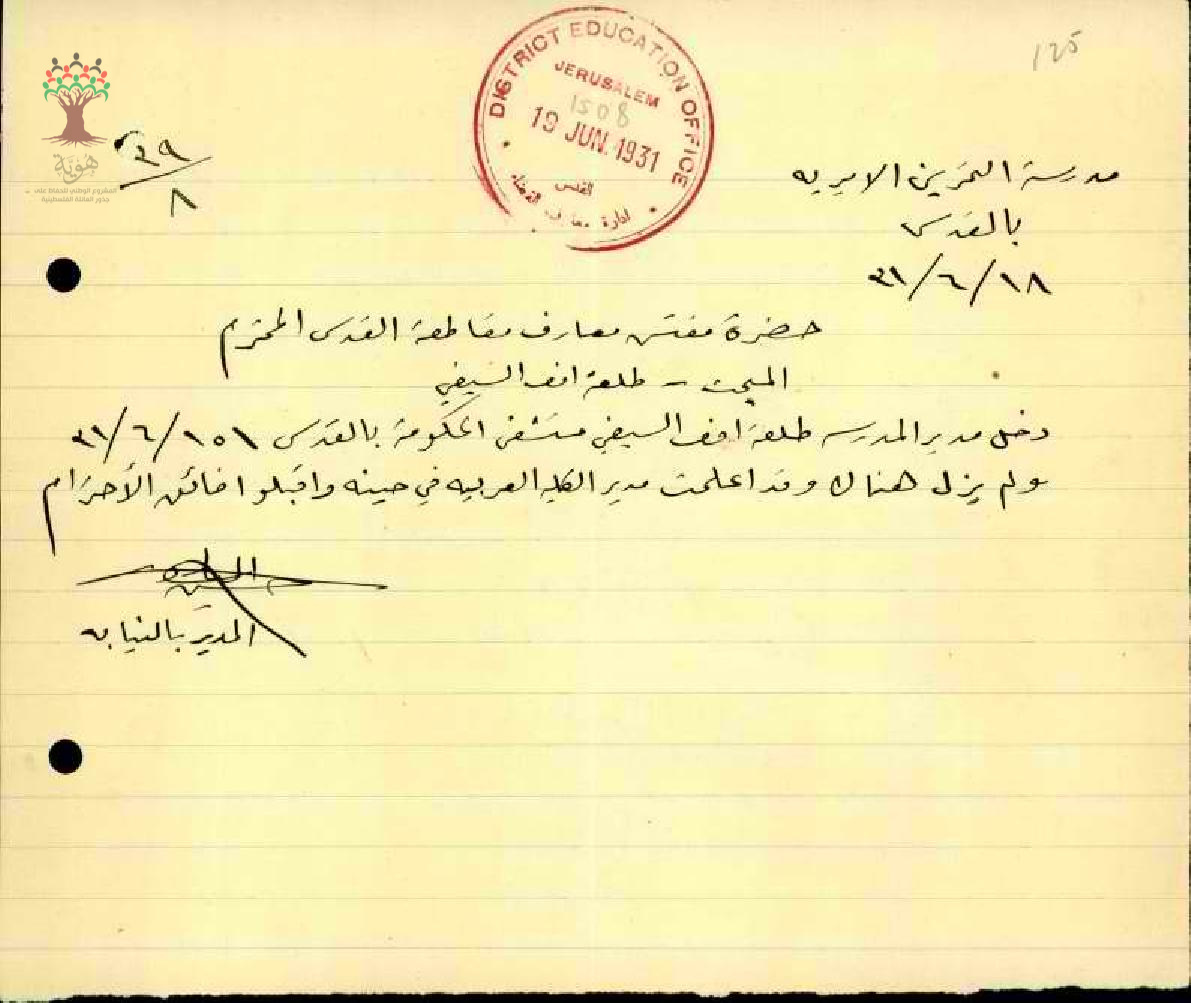 125
DISTRICT EDUCATION OFFICE
JERUSALEM
1508
19 JUN. 1931
القدس
ادارة معارف القضاء
هوية
المشروع الوطني للحفاظ على
جذور العائلة الفلسطينية
٣٩/٨
مدرسة التمرين الاميريه
بالقدس
٣١/٦/١٨
حضرة مفتش معارف مقاطعة القدس المحترم
المبحث - طلعة افند السيفي
دخل مدير المدرسه طلعة افند السيفي مستشفى الحكومة بالقدس ٣١/٦/١٥
ولم يزل هناك وقد اعلمت مدير الكلية العربيه في حينه واقبلوا فائق الأحترام
المدير بالنيابه